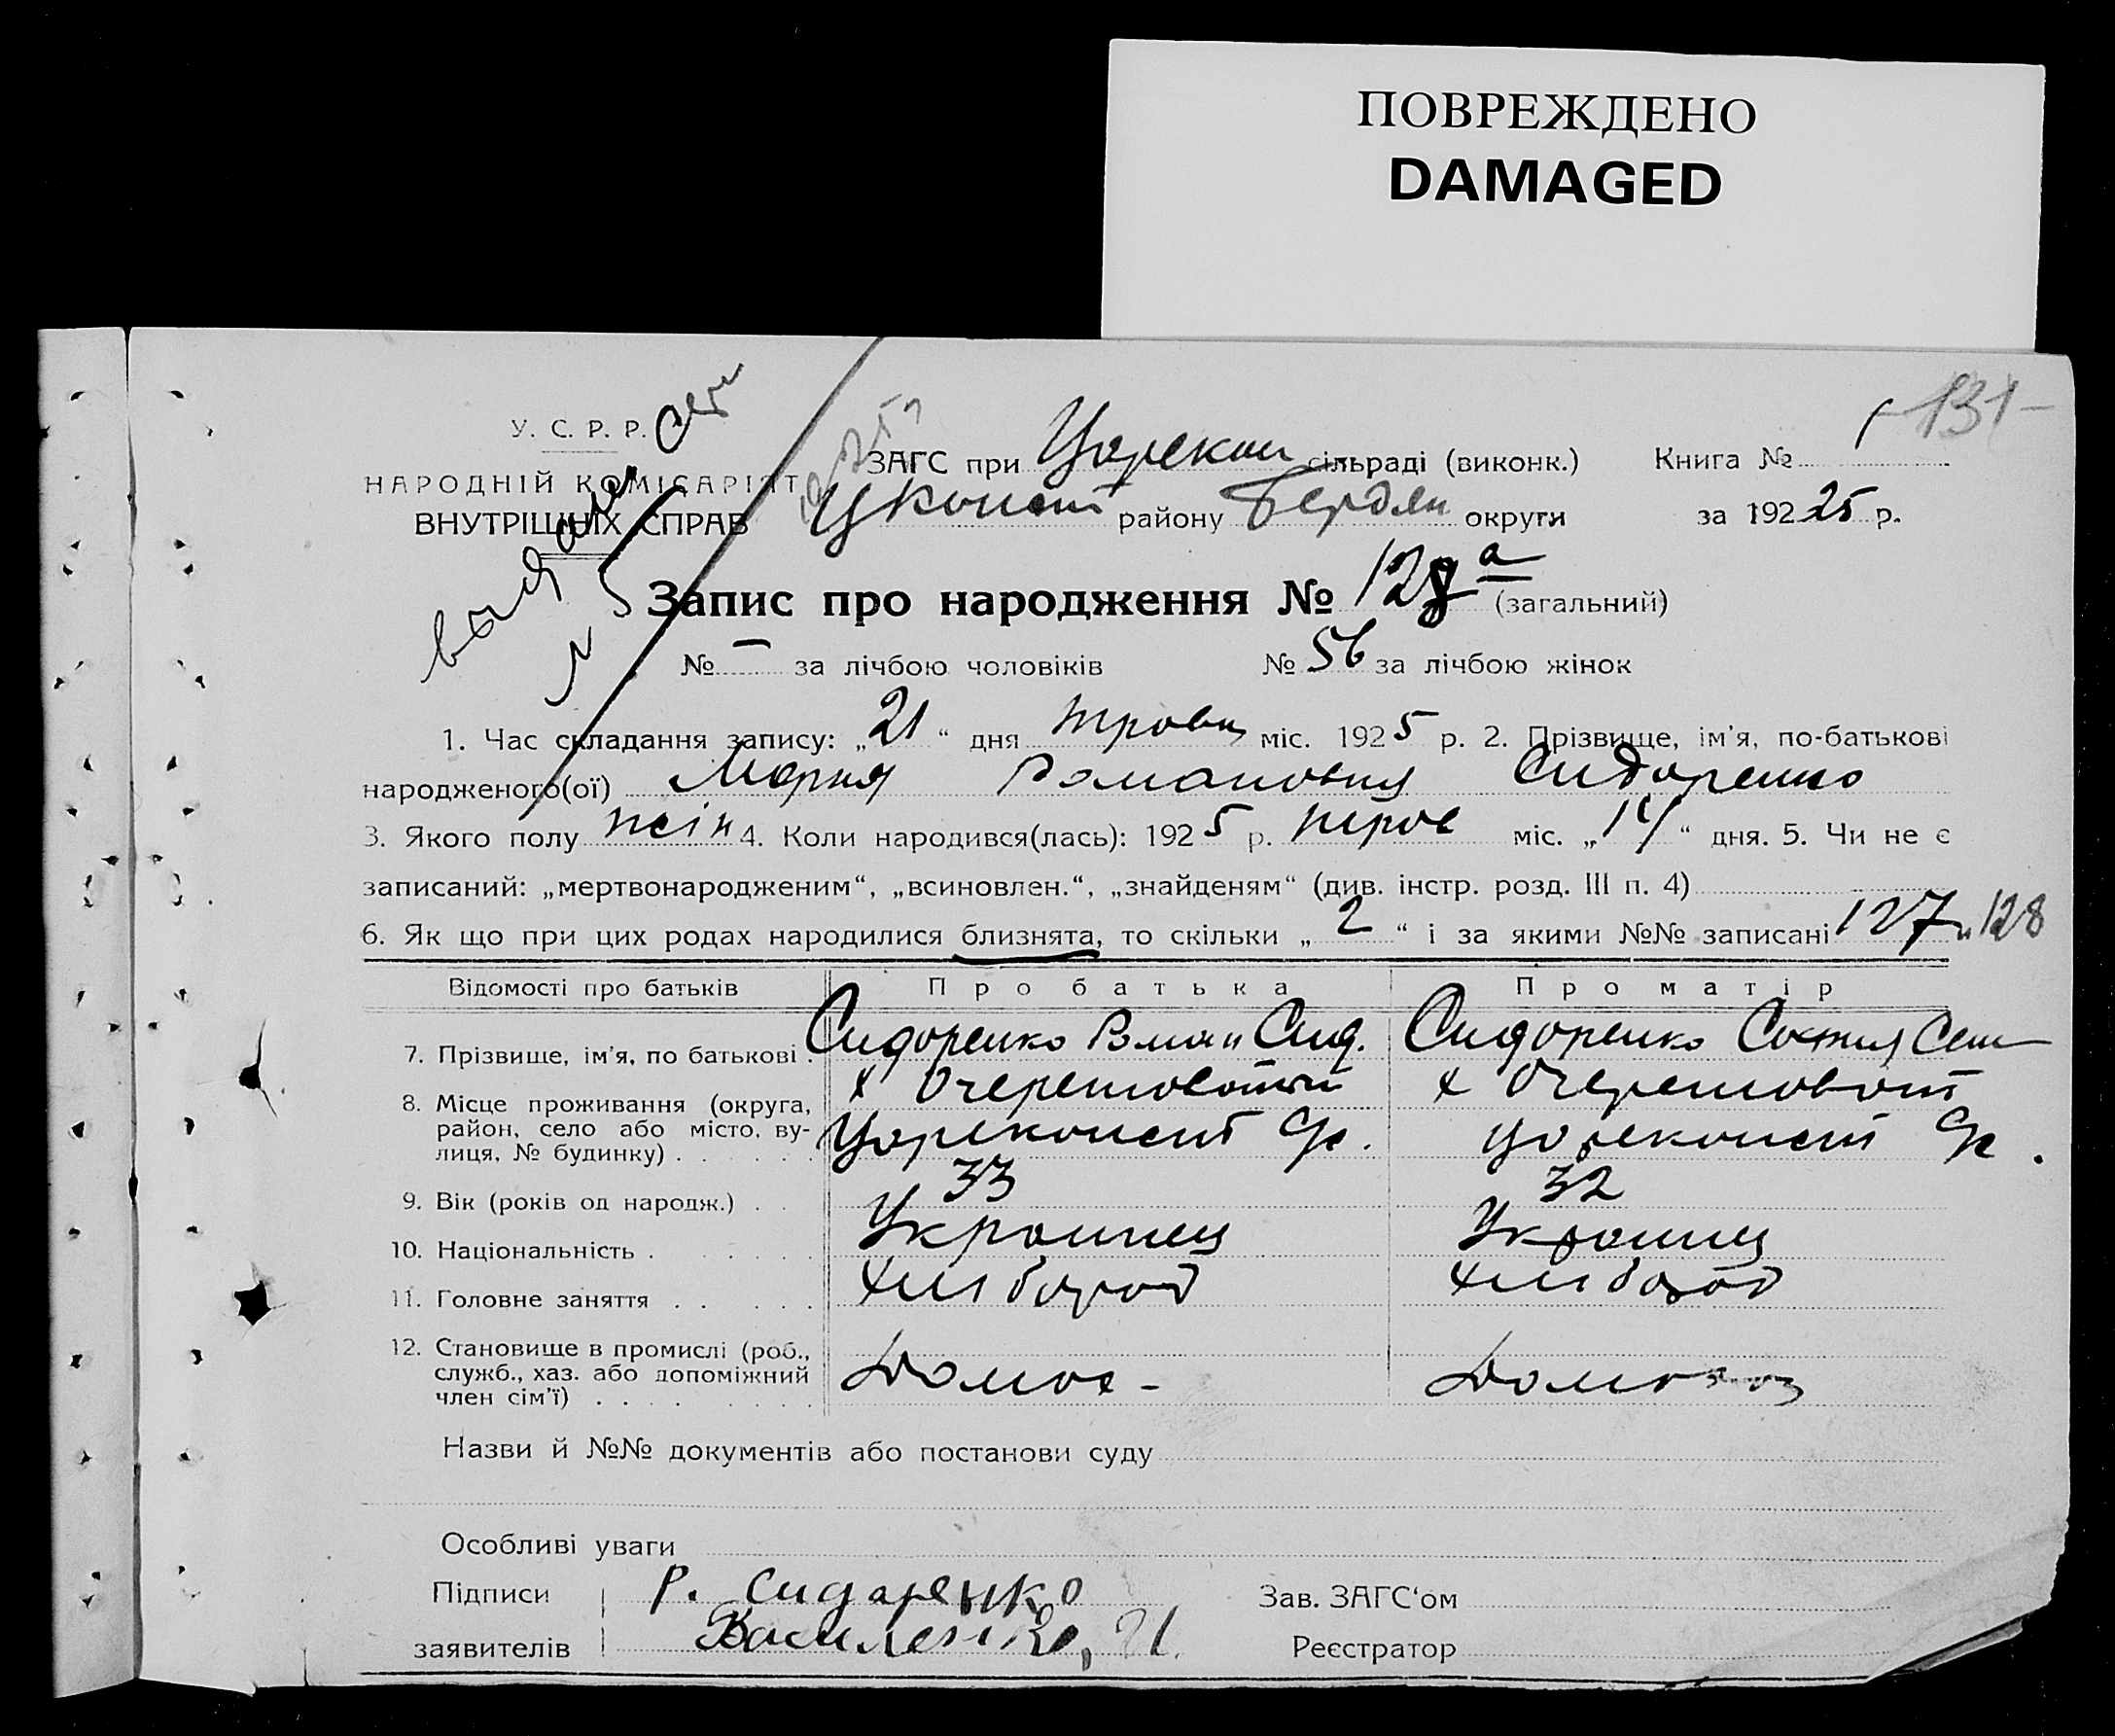 ПОВРЕЖДЕНО
DAMAGED
131
У. С. Р. Р.
НАРОДНІЙ КОМІСАРІЯТ
ВНУТРІШНІХ СПРАВ
ЗАГС при сільраді (виконк.) Книга №
району Бердян округи за 192 25 р.
Запис про народження № 128 а (загальний)
№ — за лічбою чоловіків № 56 за лічбою жінок
1. Час складання запису: „21“ дня травн міс. 1925 р. 2. Прізвище, ім'я, по-батькові
народженого(ої) Мария Романовна Сидоренко
3. Якого полу жін 4. Коли народився(лась): 1925 р. міс. „14“ дня. 5. Чи не є
записаний: „мертвонародженим“, „всиновлен.“, „знайденям“ (див. інстр. розд. III п. 4)
6. Як що при цих родах народилися близнята, то скільки „2“ і за якими №№ записані 127 и 128
Відомості про батьків Про батька Про матір
7. Прізвище, ім'я, по батькові . Сидоренко Роман Сид. Сидоренко
8. Місце проживання (округа,
район, село або місто, ву-
лиця, № будинку) . х Очеретоват х Очеретоват
Цареконст Цареконст
9. Вік (років од народж.) . . 33 32
10. Національність . Украинец Украинец
11. Головне заняття . . Хлібороб Хлібороб
12. Становище в промислі (роб.,
служб., хаз. або допоміжний
член сім'ї) . . . .
Назви й №№ документів або постанови суду
Особливі уваги
Підписи Р. Сидаренко Зав. ЗАГС'ом
заявителів Василенко, Реєстратор